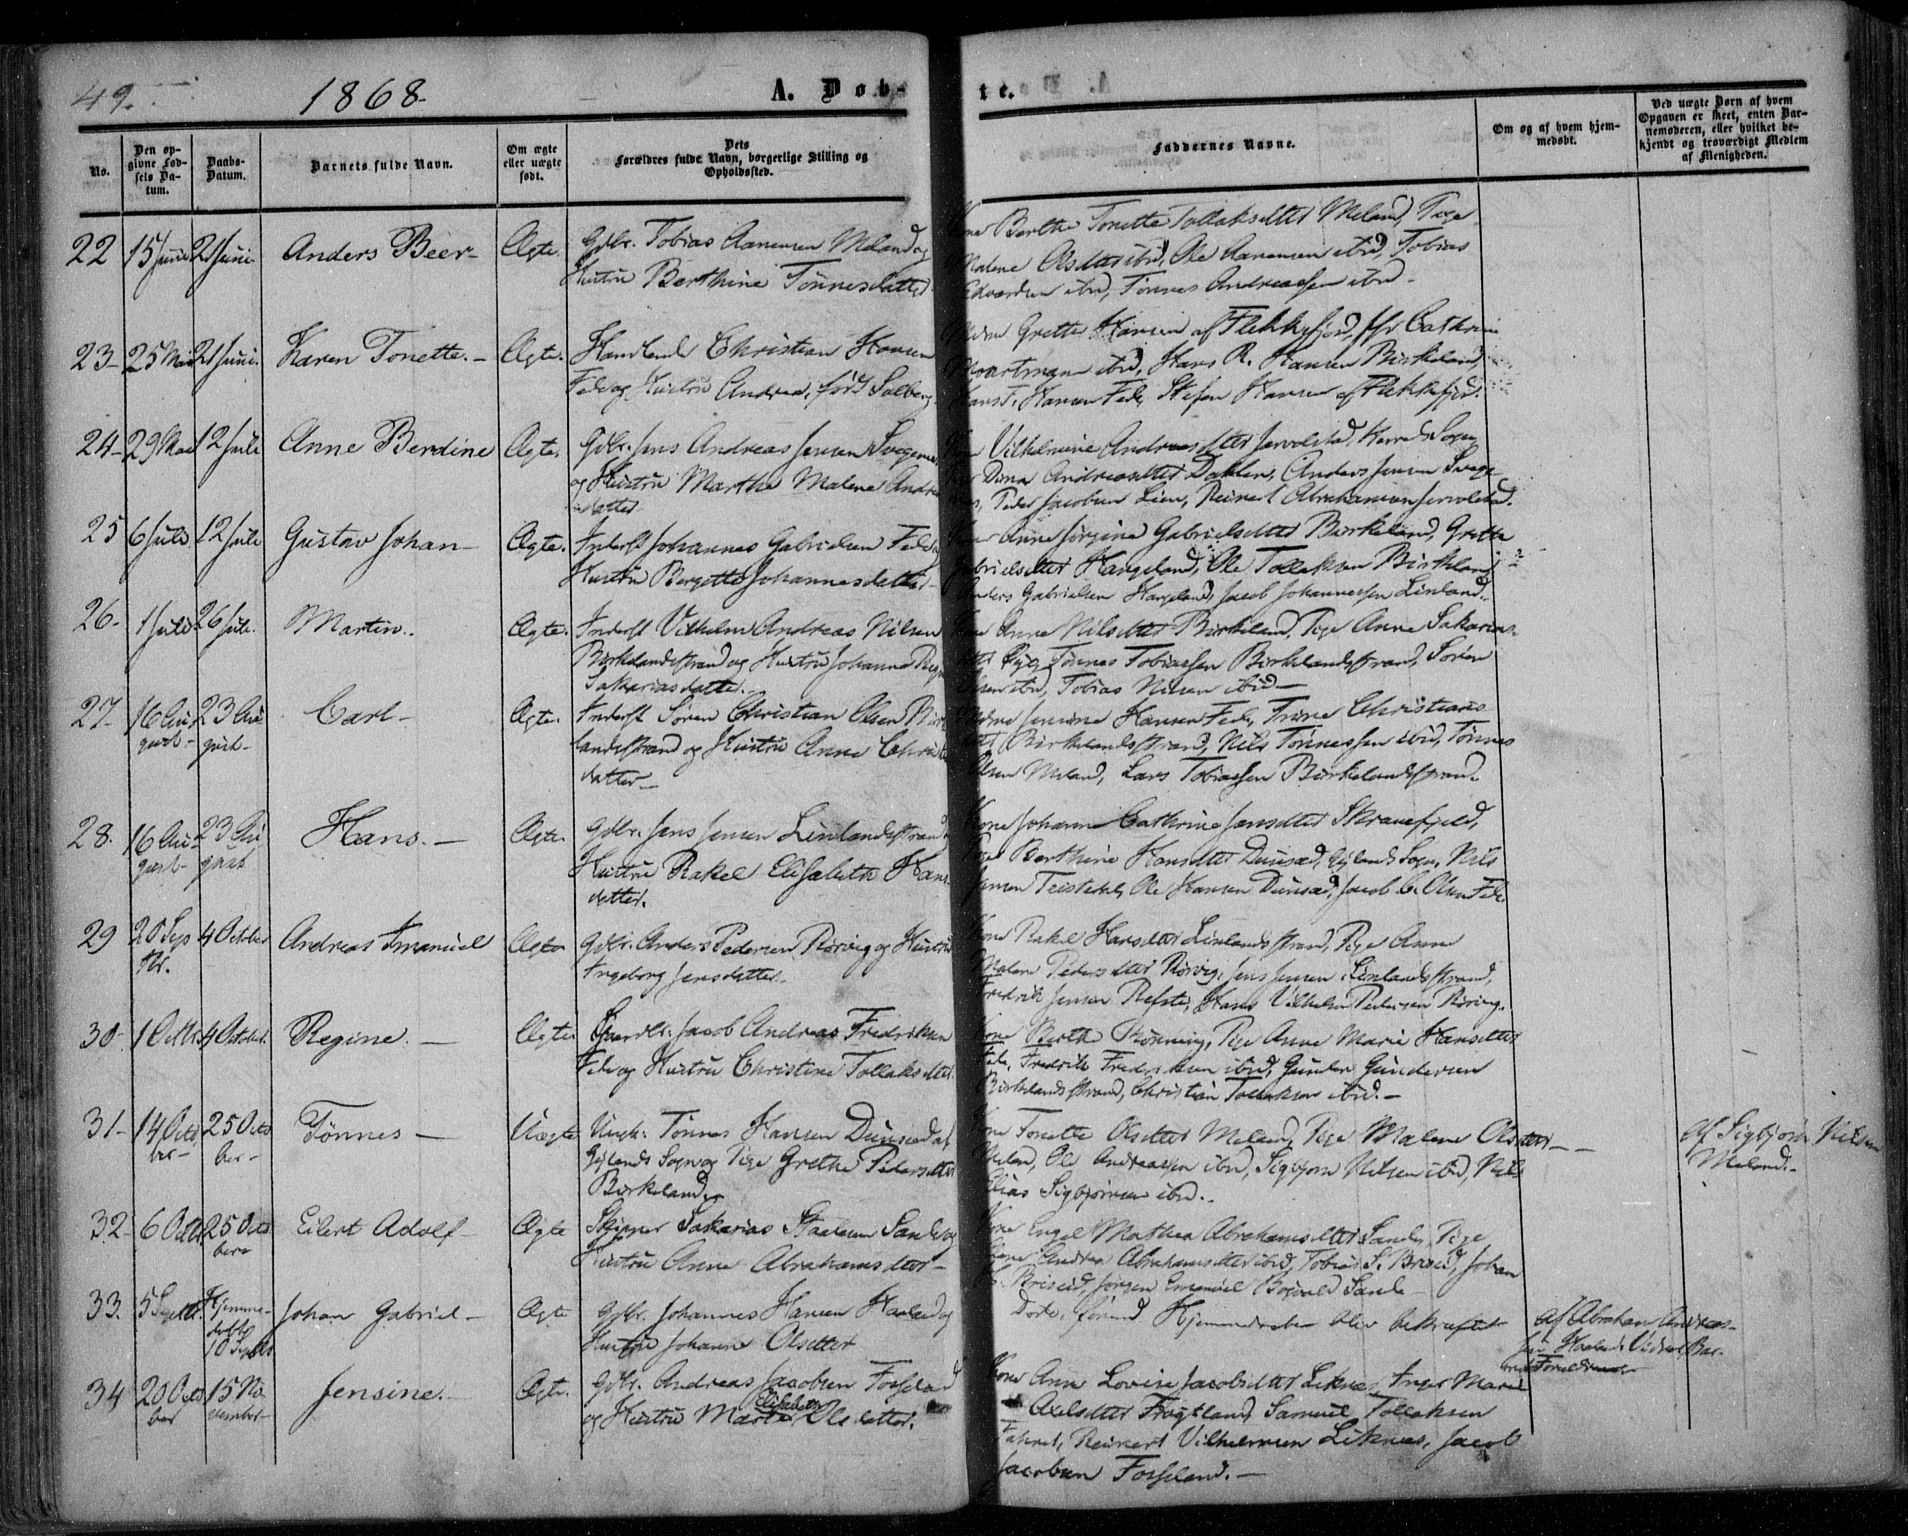 49.
1868.
A. Døb-
te.
No.
Den op-
givne Fød-
sels Da-
tum.
Daabs-
Datum.
Barnets fulde Navn.
Om ægte
eller uægte
født.
Dets
Forældres fulde Navn, borgerlige Stilling og
Opholdssted.
Faddernes Navne.
Om og af hvem hjem-
medøbt.
Ved uægte Børn af hvem
Opgaven er skeet, enten Bar-
nemoderen, eller hvilket be-
kjendt og troværdigt Medlem
af Menigheden.
22 15 Juni 21 Juni Anders Beer- Ægte. Gdbr. Tobias Aanensen Meland og
Hustru Berthine Tønnesdatter
Kone Berthe Tonette Tollaksdtter Meland, Pige
Malene Olsdtter ibid, Ole Aanensen ibid, Tobias
Edvardsen ibid, Tønnes Andreassen ibid-
23- 25 Mai 21 Juni. Karen Tonette.- Ægte. Handlend. Christian Hansen
Fede og Hustru Andrea, født Salberg
Grette Hansen af Flekkefjord, Cathrine
ibid, Hans R. Hansen Birkeland,
Hansen Fede, Stefen Hansen af Flekkefjord.
24- 29 Mai 12 Juli Anne Berdine Ægte. Gdbr. Jens Andreas Jensen
og Hustru Marthe Malene Andrea
datter
Vilhelmine Andreasdtter Jervolstad, Sogn
Dina Andreasdtter Dahlen, Anders Jensen
Peder Jacobsen Lien, Reinert Abrahamsen Jervolstad.
25 6 Juli 12 Juli Gustav Johan- Ægte. Inderst Johannes Gabrielsen Fede
Hustru Bergette Johannesdatter-
Anne Jørgine Gabrielsdtter Birkeland, Grette
Gabrielsdtter Haugeland, Ole Tollaksen Birkeland
Anders Gabrielsen Haugeland, Jacob Johannessen Linland.
26- 1 Juli 26 Juli. Martin.. Ægte. Inderst Vilhelm Andreas Nilsen
Birkelandsstrand og Hustru Johanne
Sakariasdatter.
Kone Anne Nilsdtter Birkeland, Pige Anne Sakarias-
dtter Tønnes Tobiassen Birkelandsstrand, Søren
Olsen ibid, Tobias Nilsen ibid-
27- 16 Au-
gust- 23 Au-
gust- Carl- Ægte. Inderst Søren Christian Olsen Birke
landsstrand og Hustru Anne Christi
datter-
Hansen Fede, Trine Christians
dtter Birkelandsstrand, Nils Tønnessen ibid, Tønnes
Olsen Meland, Lars Tobiassen Birkelandsstrand.
28. 16 Au-
gust- 23 Au-
gust Hans.- Ægte. Gdbr. Jens Jensen Linlandsstrand
Hustru Rakel Elisabeth Hans
datter.
Kone Johanne Cathrine Jensdtter Skranefjeld,
Pige Berthine Hansdtter Dunsæd, Gylands Sogn, Nils
Jensen Teistedal, Ole Hansen Dunsæd, Jacob C. Olsen Fede.
29 20 Sep
tbr. 4 October Andreas Imanuel Ægte Gdbr. Anders Pedersen Rørvig og Hustru
Ingeborg Jensdatter.
Kone Rakel Hansdtter Linlandsstrand, Pige Anne
Malene Pedersdtter Rørvig, Jens Jensen Linlandsstrand,
Fredrik Jensen Hans Vilhelm Pedersen Rørvig.
30- 1 Octbr 4 October. Regine.- Ægte Jacob Andreas Fredriksen
Fede og Hustru Christine Tollaksdtter
Kone Berthe Rønning, Pige Anne Marie Hansdtter
Fede, Fredrik Fredriksen ibid, Gunder Gundersen
Birkelandsstrand, Christian Tollaksen ibid.-
31- 14 Octo
ber- 25 Octo
ber- Tønnes- Uægte Ungk. Tønnes Hansen Dunsæd af
Gylands Sogn og Pige Grethe Pedersdtter
Birkeland.
Kone Tonette Olsdtter Meland, Pige Malene Olsdtter
Meland, Ole Andreassen ibid, Sigbjørn Nilsen ibid, Nils
Elias Sigbjørnsen ibid.
af Sigbjørn Nilsen
Meland.-
32- 6 Octbr 25 Octo
ber Eilert Adolf- Ægte Skipper Sakarias Staalesen Sande og
Hustru Anne Abrahamsdtter-
Kone Engel Mathea Abrahamsdtter Sande, Pige
Andrea Abrahamsdtter ibid, Tobias S. Briseid, Johan
S. Briseid, Jørgen Emanuel Sande-
33. 5 Septbr. Hjemme-
døbt
10 Septbr Johan Gabriel- Ægte Gdbr. Johannes Hansen Haaland og
Hustru Johanne Olsdtter
Døde, førend Hjemmedaaben blev bekræftet
af Abraham Andreas-
sen Haaland.
Forældrene.
34 20 Octo
ber 15 No
vember- Jensine.. Ægte. Gdbr. Andreas Jacobsen Fosseland
og Hustru Marte Elisabeth Olsdatter.
Kone Anne Lovise Jacobsdtter Liknes, Inger Marie
Axelsdtter Frøytland, Samuel Tollaksen
Reinert Vilhelmsen Liknes, Jacob
Jacobsen Fosseland.-